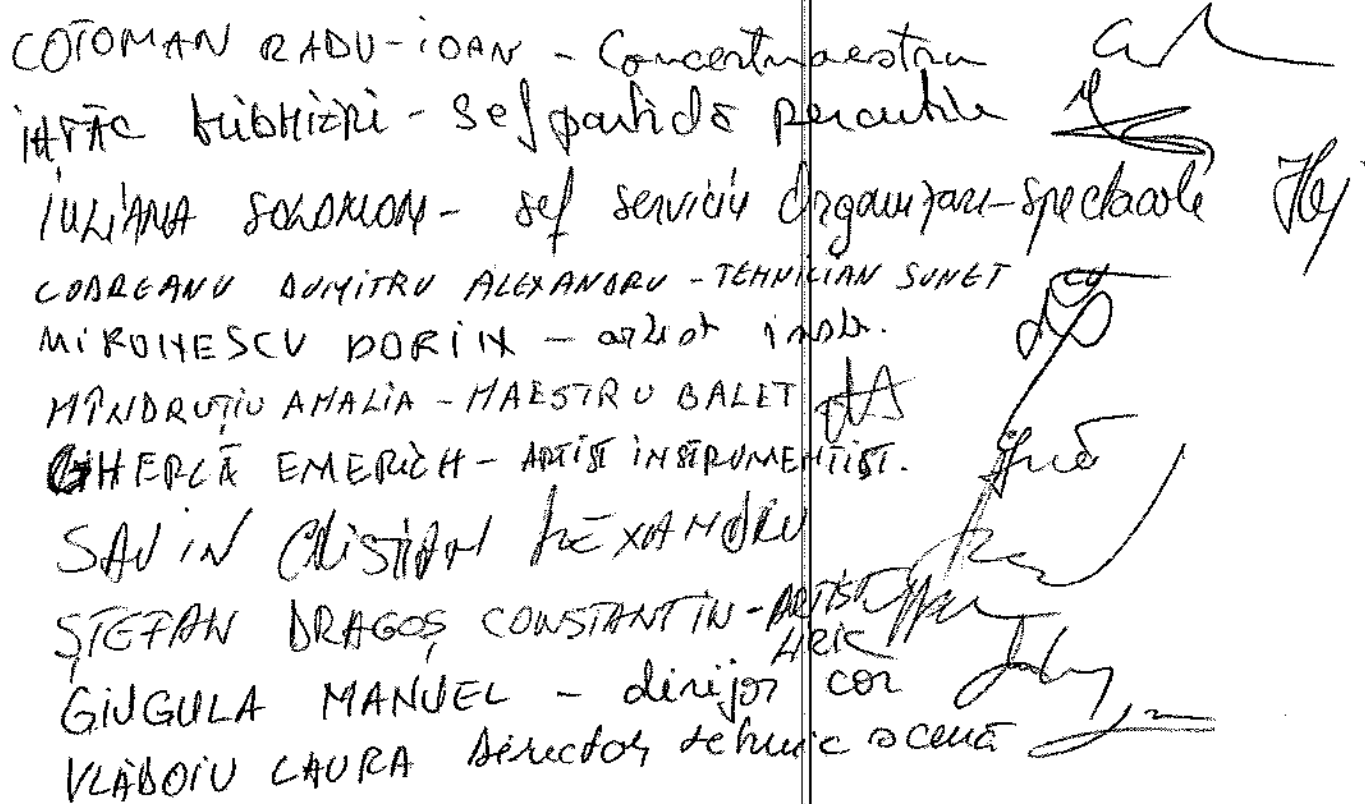 COTOMAN RADU-IOAN - Concertmaestru
- Sef partidă percutie
IULIANA SOLOMON - sef serviciu Organizare-spectacole
CODREANU DUMITRU ALEXANDRU - TEHNICIAN SUNET
MIRONESCU DORIN - artist instr.
MÎNDRUȚIU AMALIA - MAESTRU BALET
GHERLĂ EMERICH - ARTIST INSTRUMENTIST.
SAVIN CRISTIAN ALEXANDRU
ȘTEFAN DRAGOȘ CONSTANTIN - ARTIST
LIRIC
GIUGULA MANUEL - dirijor cor
VLĂDOIU LAURA Director tehnic scenă